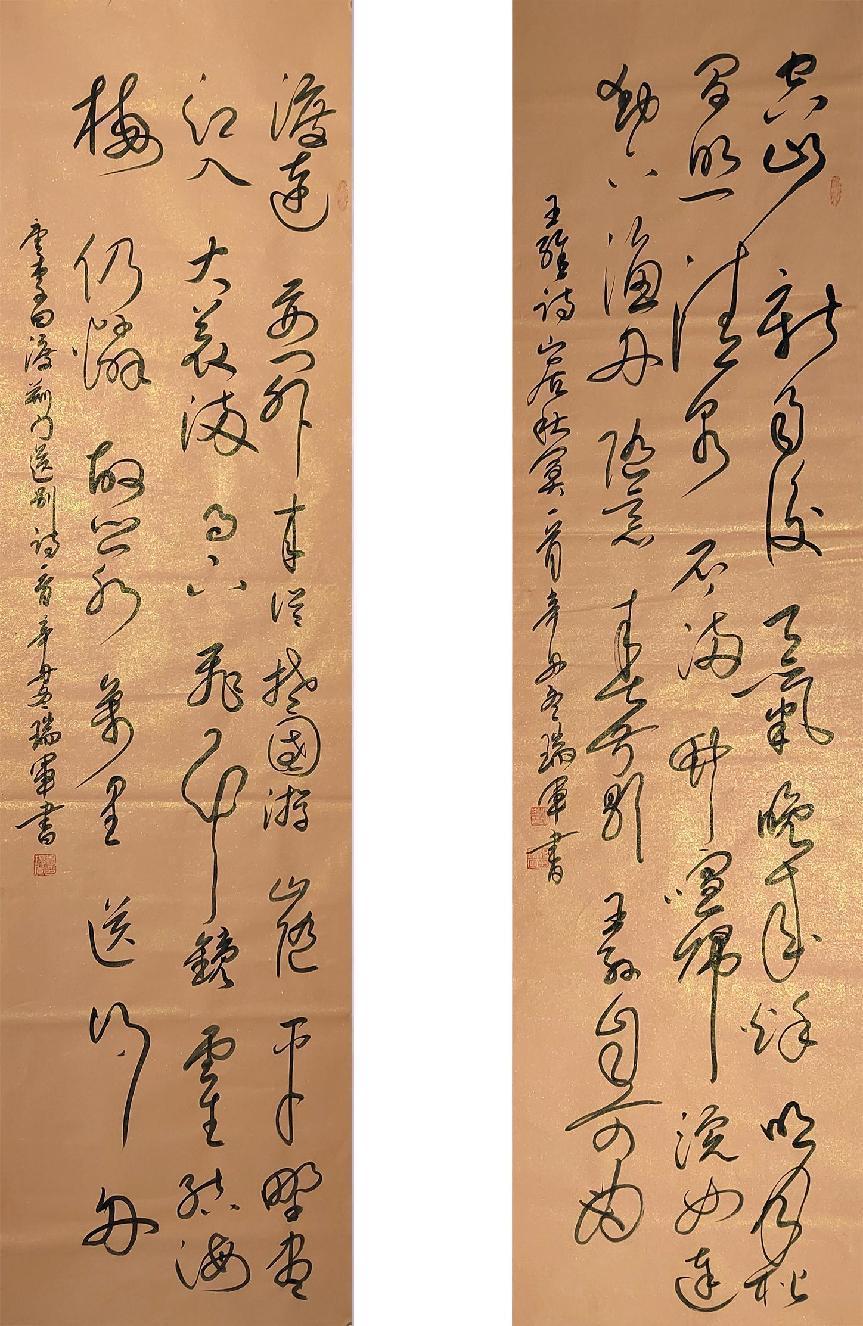 空山新雨後天氣晚來秋明月松
間照清泉石上流竹喧歸浣女蓮
動下漁舟隨意春芳歇王孫自可留
王維詩山居秋冥一首辛丑冬瑞軍書
渡遠荊門外來從楚國游山隨平野盡
江入大荒流月下飛天鏡雲生結海
樓仍憐故鄉水萬里送行舟
唐李白渡荊門送別詩一首辛丑冬瑞軍書